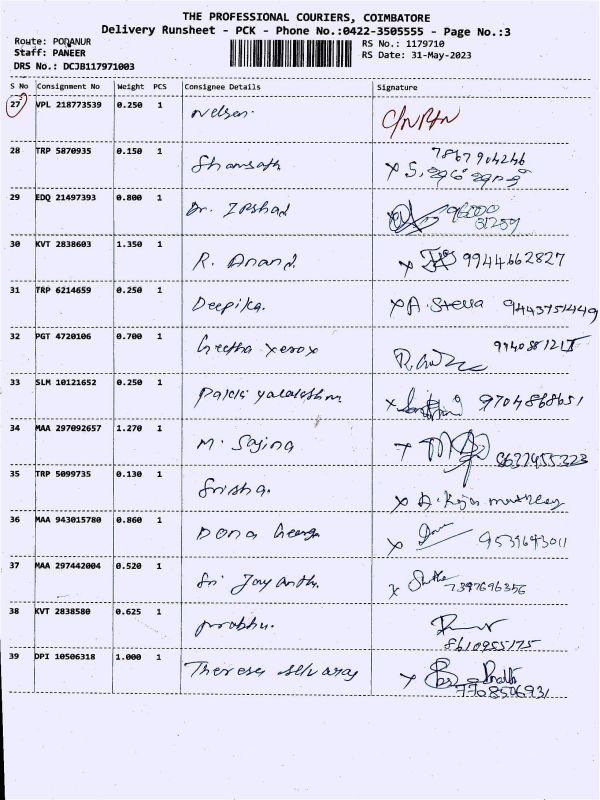 THE PROFESSIONAL COURIERS, COIMBATORE
Delivery Runsheet - PCK - Phone No.:0422-3505555 - Page No.:3
Route: PODANUR
RS No.: 1179710
Staff: PANEER
RS Date: 31-May-2023
DRS No.: DCJB117971003
S No Consignment No Weight PCS Consignee Details Signature
27 VPL 218773539 0.250 1 Nelson.
28 TRP 5870935 0.150 1 7867904246
29 EDQ 21497393 0.800 1 Dr. Irshad
30 KVT 2838603 1.350 1 R. Anand. 9944662827
31 TRP 6214659 0.250 1 Deepika. x A. Stella 9443751449
32 PGT 4720106 0.700 1 Geetha xerox
33 SLM 10121652 0.250 1 9704868651
34 MAA 297092657 1.270 1 M. Sajina 8637455323
35 TRP 5099735 0.130 1 Srisha.
36 MAA 943015780 0.860 1 Dona George 9539643011
37 MAA 297442004 0.520 1 Sri Jayanth. 7397696356
38 KVT 2838580 0.625 1 Prabhu. 8610955175
39 DPI 10506318 1.000 1 Theresa Selvaraj 7708506931